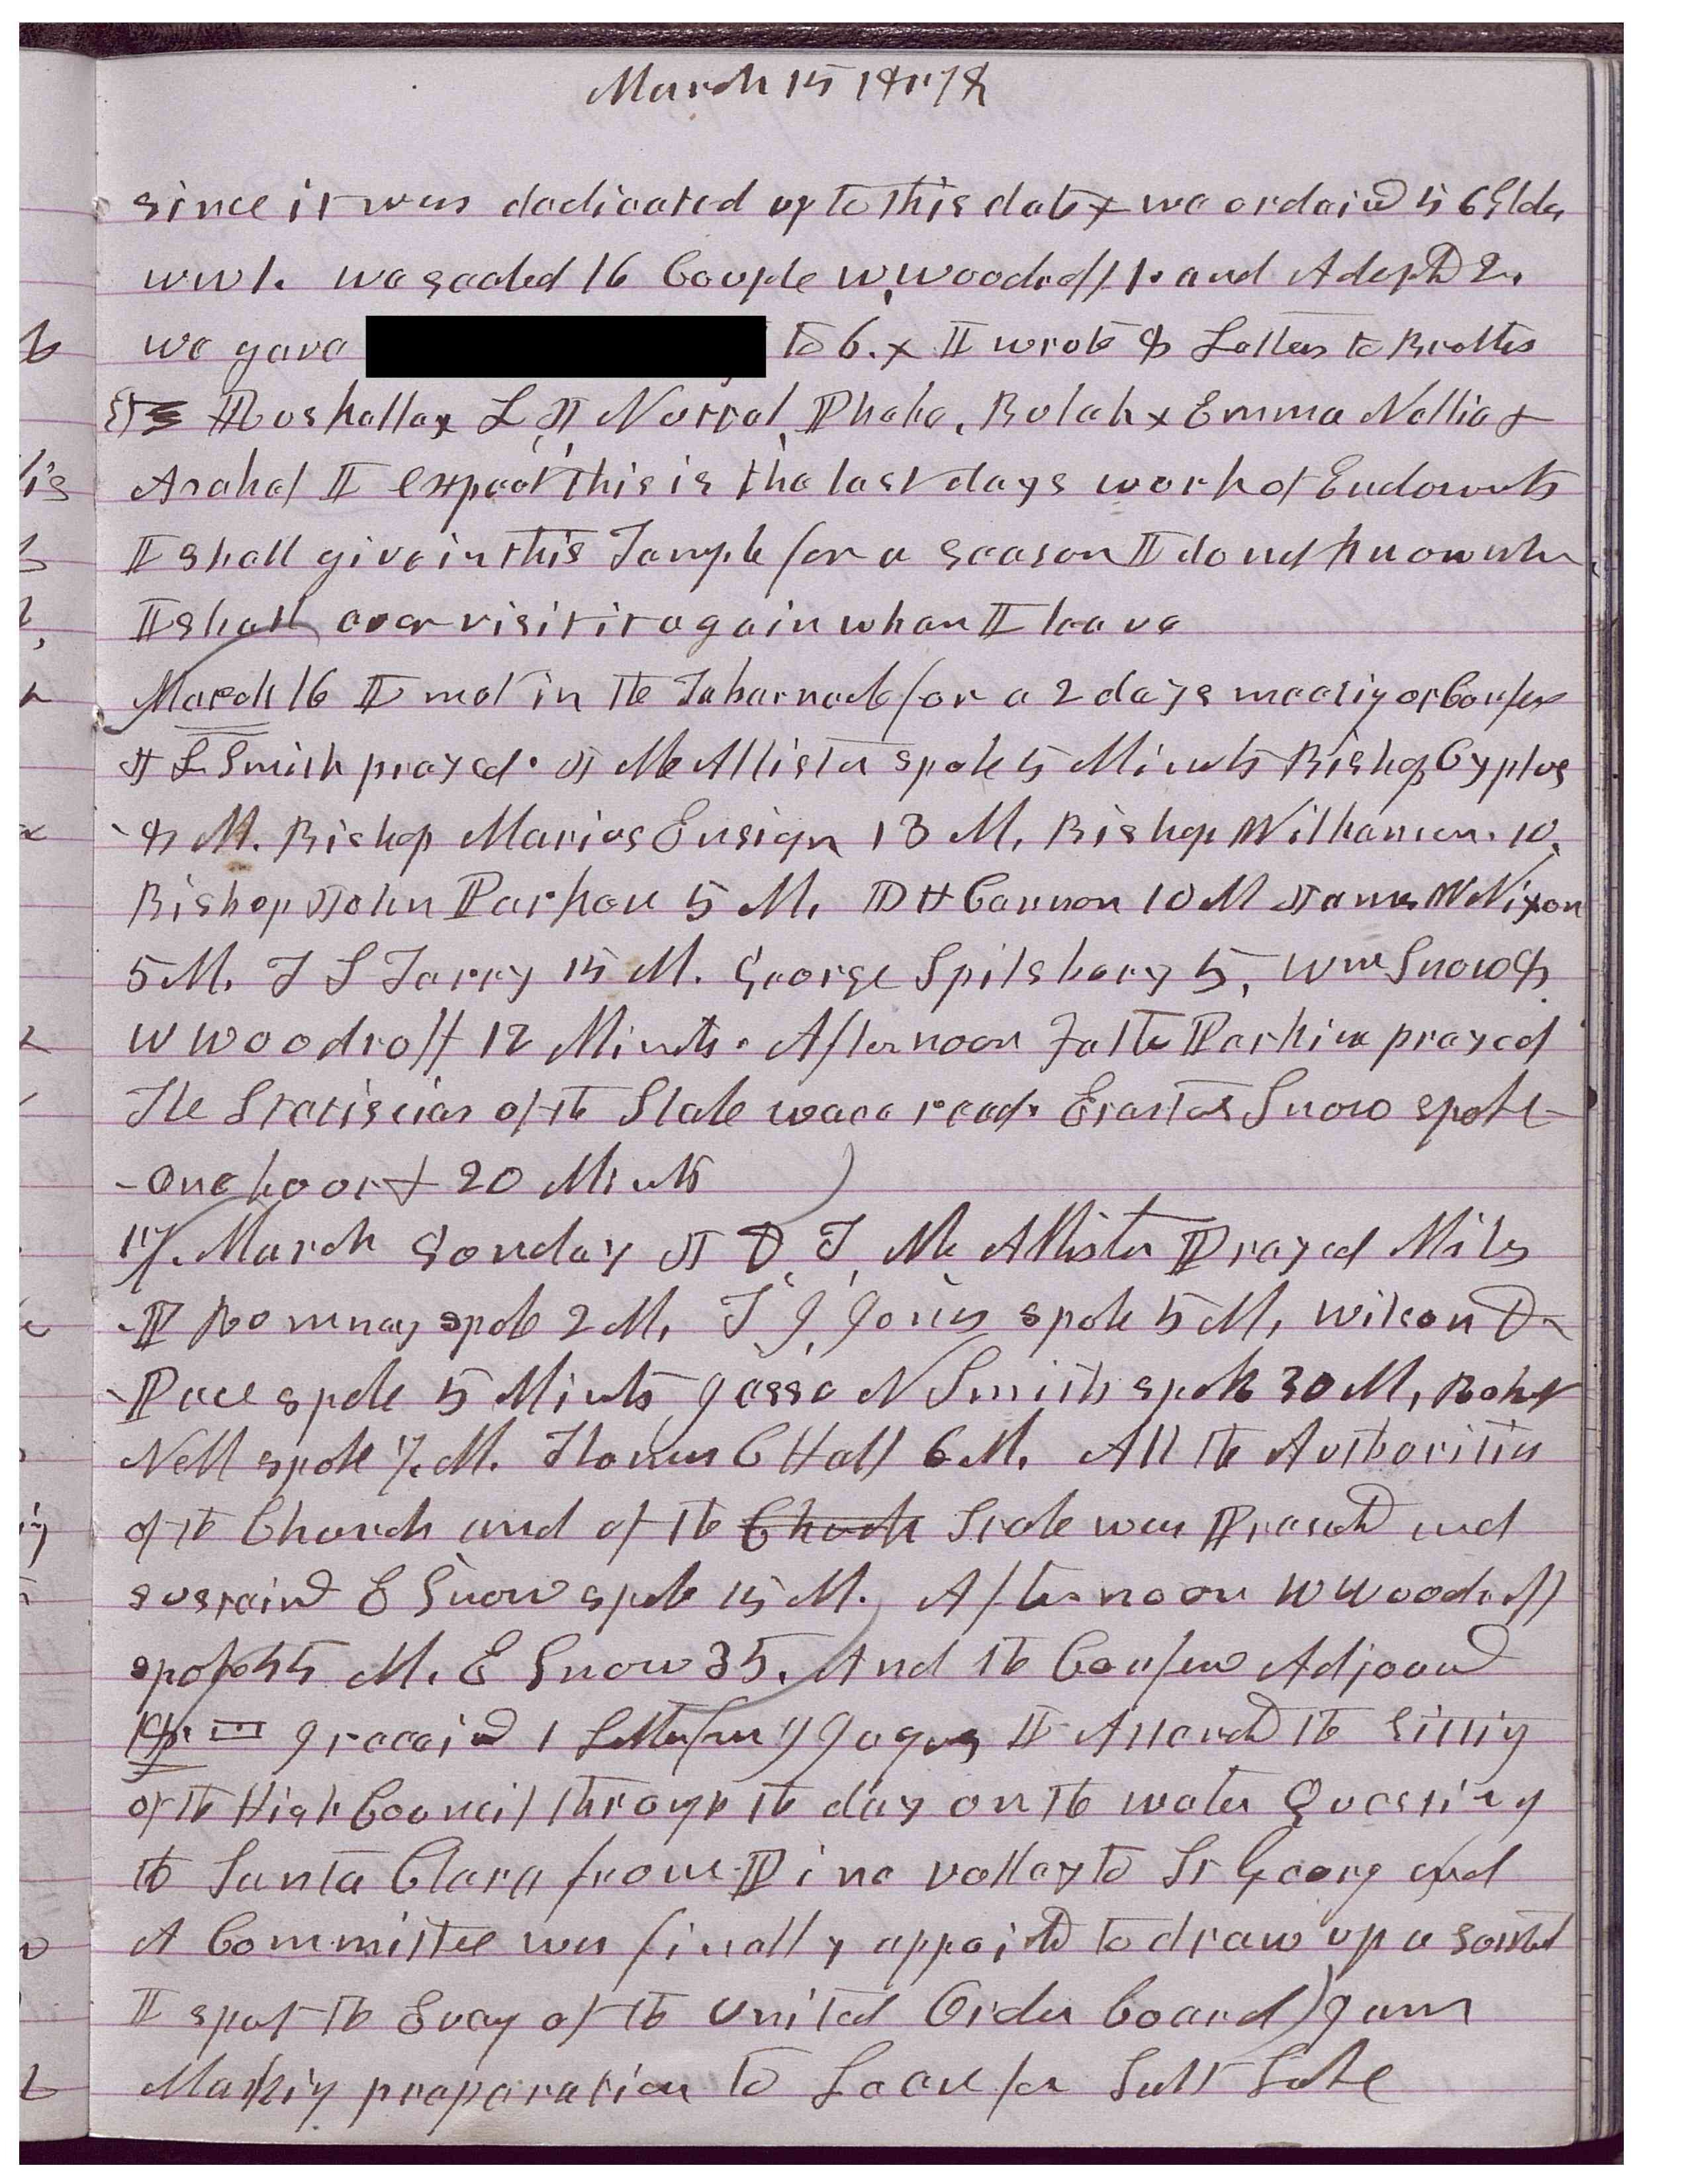 March 15 1878
since it was dedicated up to this date & we ordaind 56 Elders
WW 1. we sealed 16 Couple W, Woodruff 1. and Adoptd 2.
we gave to 6. & I wrote 8 Letters to Brother
L, J, Nuttal, Phebe, Bulah & Emma Nellie &
Asahel I expect this is the last days work of Endowmts
I shall give in this Temple for a season I do not know whn
I shall ever visit it again when I leave
March 16 I met in the Tabernacle for a 2 days meeting or Confer
H L Smith prayed. J McAllister spoke 5 Minuts Bishop
8 M. Bishop Marius Ensign 13 M, Bishop Williamson. 10.
Bishop John Parker 5 M, D H Cannon 10 M James W Nixon
5 M. T S Terry 15 M. George Spilsbury 5, Wm Snow 8
W Woodruff 12 Minuts. Afternoon Father Perkins prayed
The Statistics of the Stake ware read. Erastus Snow spoke
One hour & 20 Minuts
17, March Sunday J D, T, McAllister Prayed Miles
P Romney spoke 2 M, T J, Jones spoke 5 M, Wilson D
Pace spoke 5 Minuts Jesse N Smith spoke 30 M, Robert
Nell spoke 7. M. Thomas C Hall 6 M. All the Authorities
of the Church and of the Church Stake was Presentd and
sustaind E Snow spoke 15 M. Afternoon W Woodruff
spoke 55 M. E Snow 35. And the Confere Adjournd
18. I receivd 1 Letter from Jaques I Attendd the sitting
of the High Council through the day on the water Questiong
the Santa Clara from Pine valley to St George and
A Committee was finally appointd to draw up a
I spent the Eveng of the United Order board) I am
Making preparation to Leave for Salt Lake